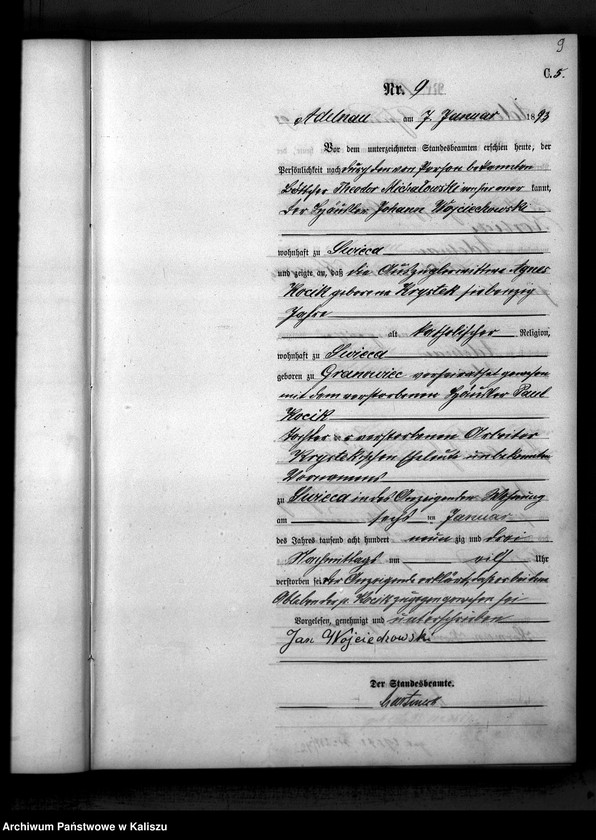 9
C. 5.
Nr. 9
Adelnau am 7 Januar 1893
Vor dem unterzeichneten Standesbeamten erschien heute, der
Persönlichkeit nach durch den von Person bekannten
Böttcher Theodor Michałowski anerkannt,
der Häusler Johann Wojciechowski
wohnhaft zu Swieca
und zeigte an, daß die Auszüglerwittwe Agnes
Kocik geborene Krystek siebenzig
Jahre
alt katholischer Religion,
wohnhaft zu Swieca
geboren zu Granowiec verheirathet gewesen
mit dem verstorbenen Häusler Paul
Kocik
Tochter der verstorbenen Arbeiter
Krystekschen Eheleute unbekannten
Vornamens
zu Swieca in des Anzeigenden Wohnung
am sechs ten Januar
des Jahres tausend acht hundert neun zig und drei
Nachmittags um eilf Uhr
verstorben sei der Anzeigende erklärt, daß er bei dem
Ableben der p. Kocik zugegen gewesen sei
Vorgelesen, genehmigt und unterschrieben
Jan Wojciechowski
Der Standesbeamte.
Archiwum Państwowe w Kaliszu